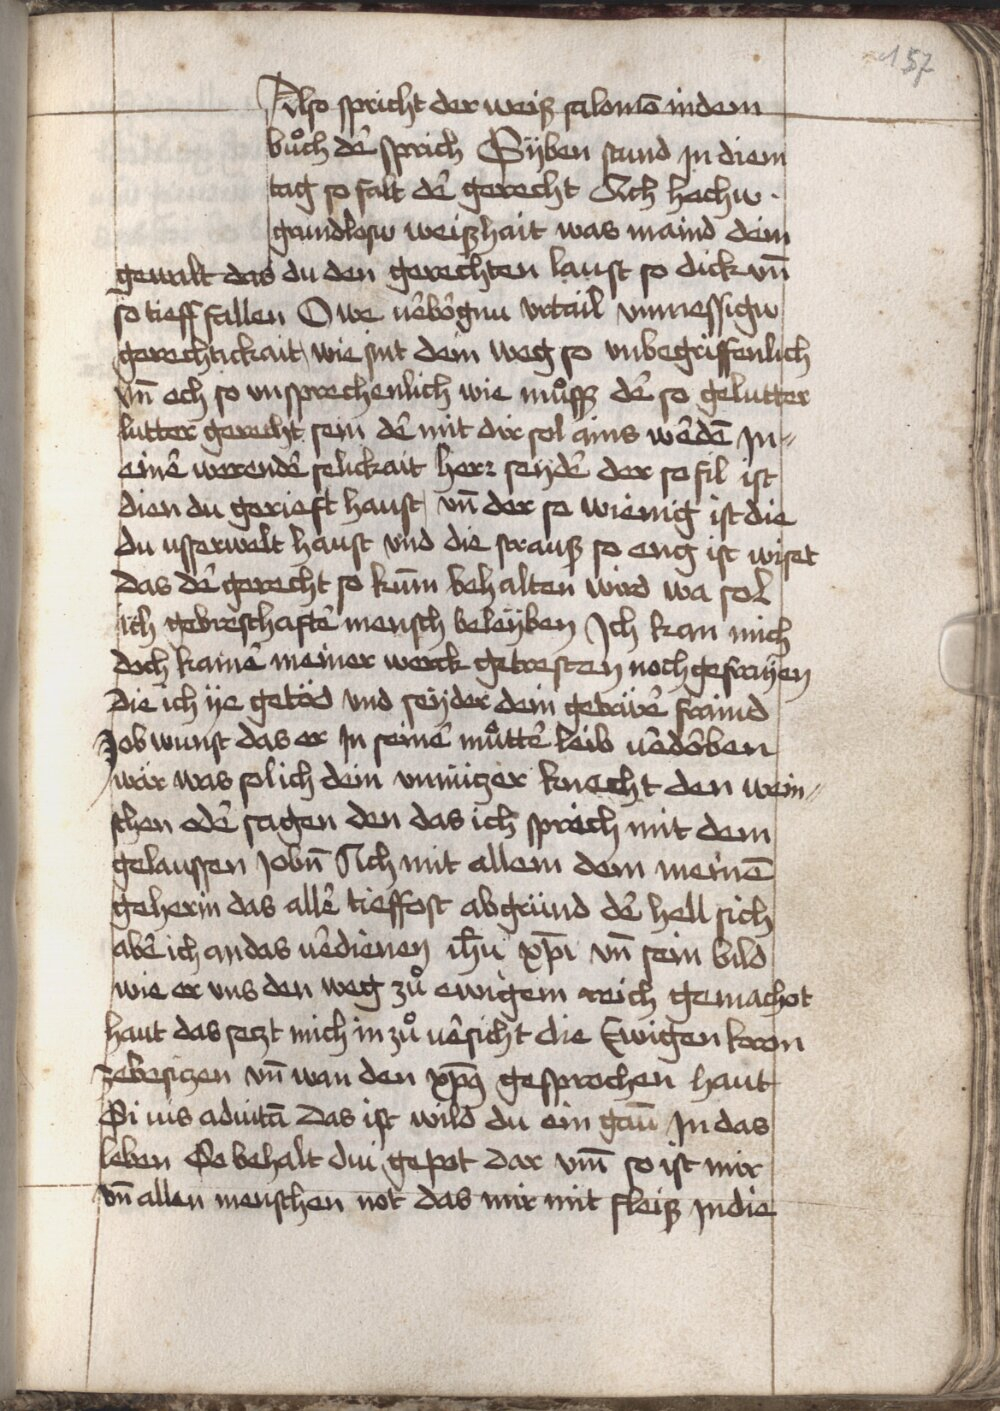 157
Also spricht der weiß salomō in dem
bůch dē sprich Syben stund jn diem
tag so falt dē gerecht Ach hochiu
grundlosiu weißhait was maind dein
gewalt das du den gerechten laust so dick vn̄
so tieff fallen O we vēbōgnu vrtail vnmessigiu
gerechtickait wie sint dein weg so vnbegriffenlich
vn̄ och so vnsprechenlich wie můss dē so gelutter
lutter gerecht sein dē mit dir sol ains wēdē jn
einē werendē selickait herr seydē der so fil ist
dien du gerieft haust vn̄ der so wienig ist die
du usserwelt haust vnd die strauß so eng ist wiset
das dē gerecht so kum̄ behalten wird wa sol
ich gebreschaftē mensch beleyben Ich kan mich
doch kainē meiner werck getresten noch gefrayen
die ich ye getäd vnd seyder dein getriwē fraind
Job wunst das er jn seinē můttē leib vēdōben
wär was sol ich dein vnnüczer knecht den wein
schen odē sagen den das ich sprech mit dem
gelaussen Jobn̄ Ach mit allem dem meinē
geherin das allē tieffost abgründ dē hell sich
abē ich an das vēdienen ih̄u xp̄i vn̄ sein bild
wie er vns den weg zů ewigem reich gemachot
haut das seczt mich in zů vēsicht die Ewigen kron
ze besiczen vn̄ wan den xp̄s gesprochen haut
Si uis ad uitā Das ist wild du ein gān In das
leben So behalt diu gepot dar vm̄ so ist mir
vn̄ allen menschen not das mir mit fleiß jn die